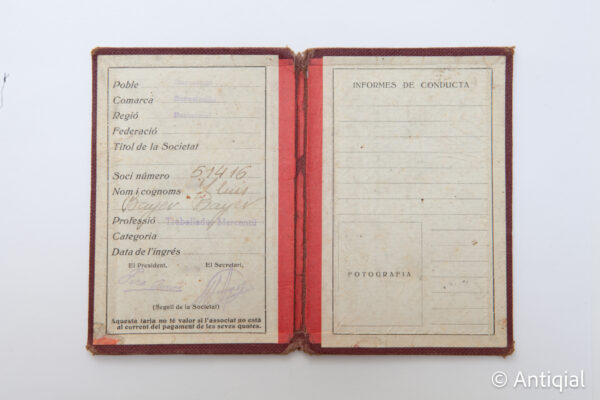 Poble
Comarca
Regió
Federació
Titol de la Societat
Soci número 51416
Nom i cognoms Lluis
Bayer Bayer
Professió Treballador Mercantil
Categoria
Data de l'ingrés
El President. El Secretari,
(Segell de la Societat)
Aquesta tarja no té valor si l'associat no está
al corrent del pagament de les seves quotes.
INFORMES DE CONDUCTA
FOTOGRAFIA
© Antiqial